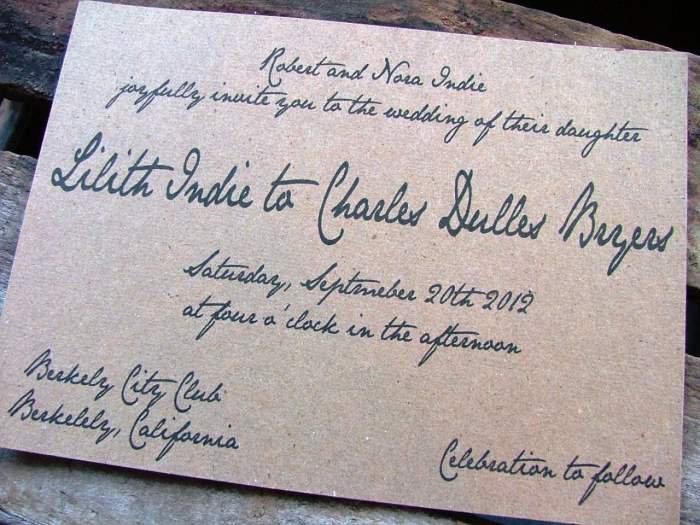 Robert and Nora Indie
joyfully invite you to the wedding of their daughter
Lilith Indie to Charles Dulles Bryers
Saturday, Septmeber 20th 2012
at four o'clock in the afternoon
Berkely City Club
Berkelely, California
Celebration to follow